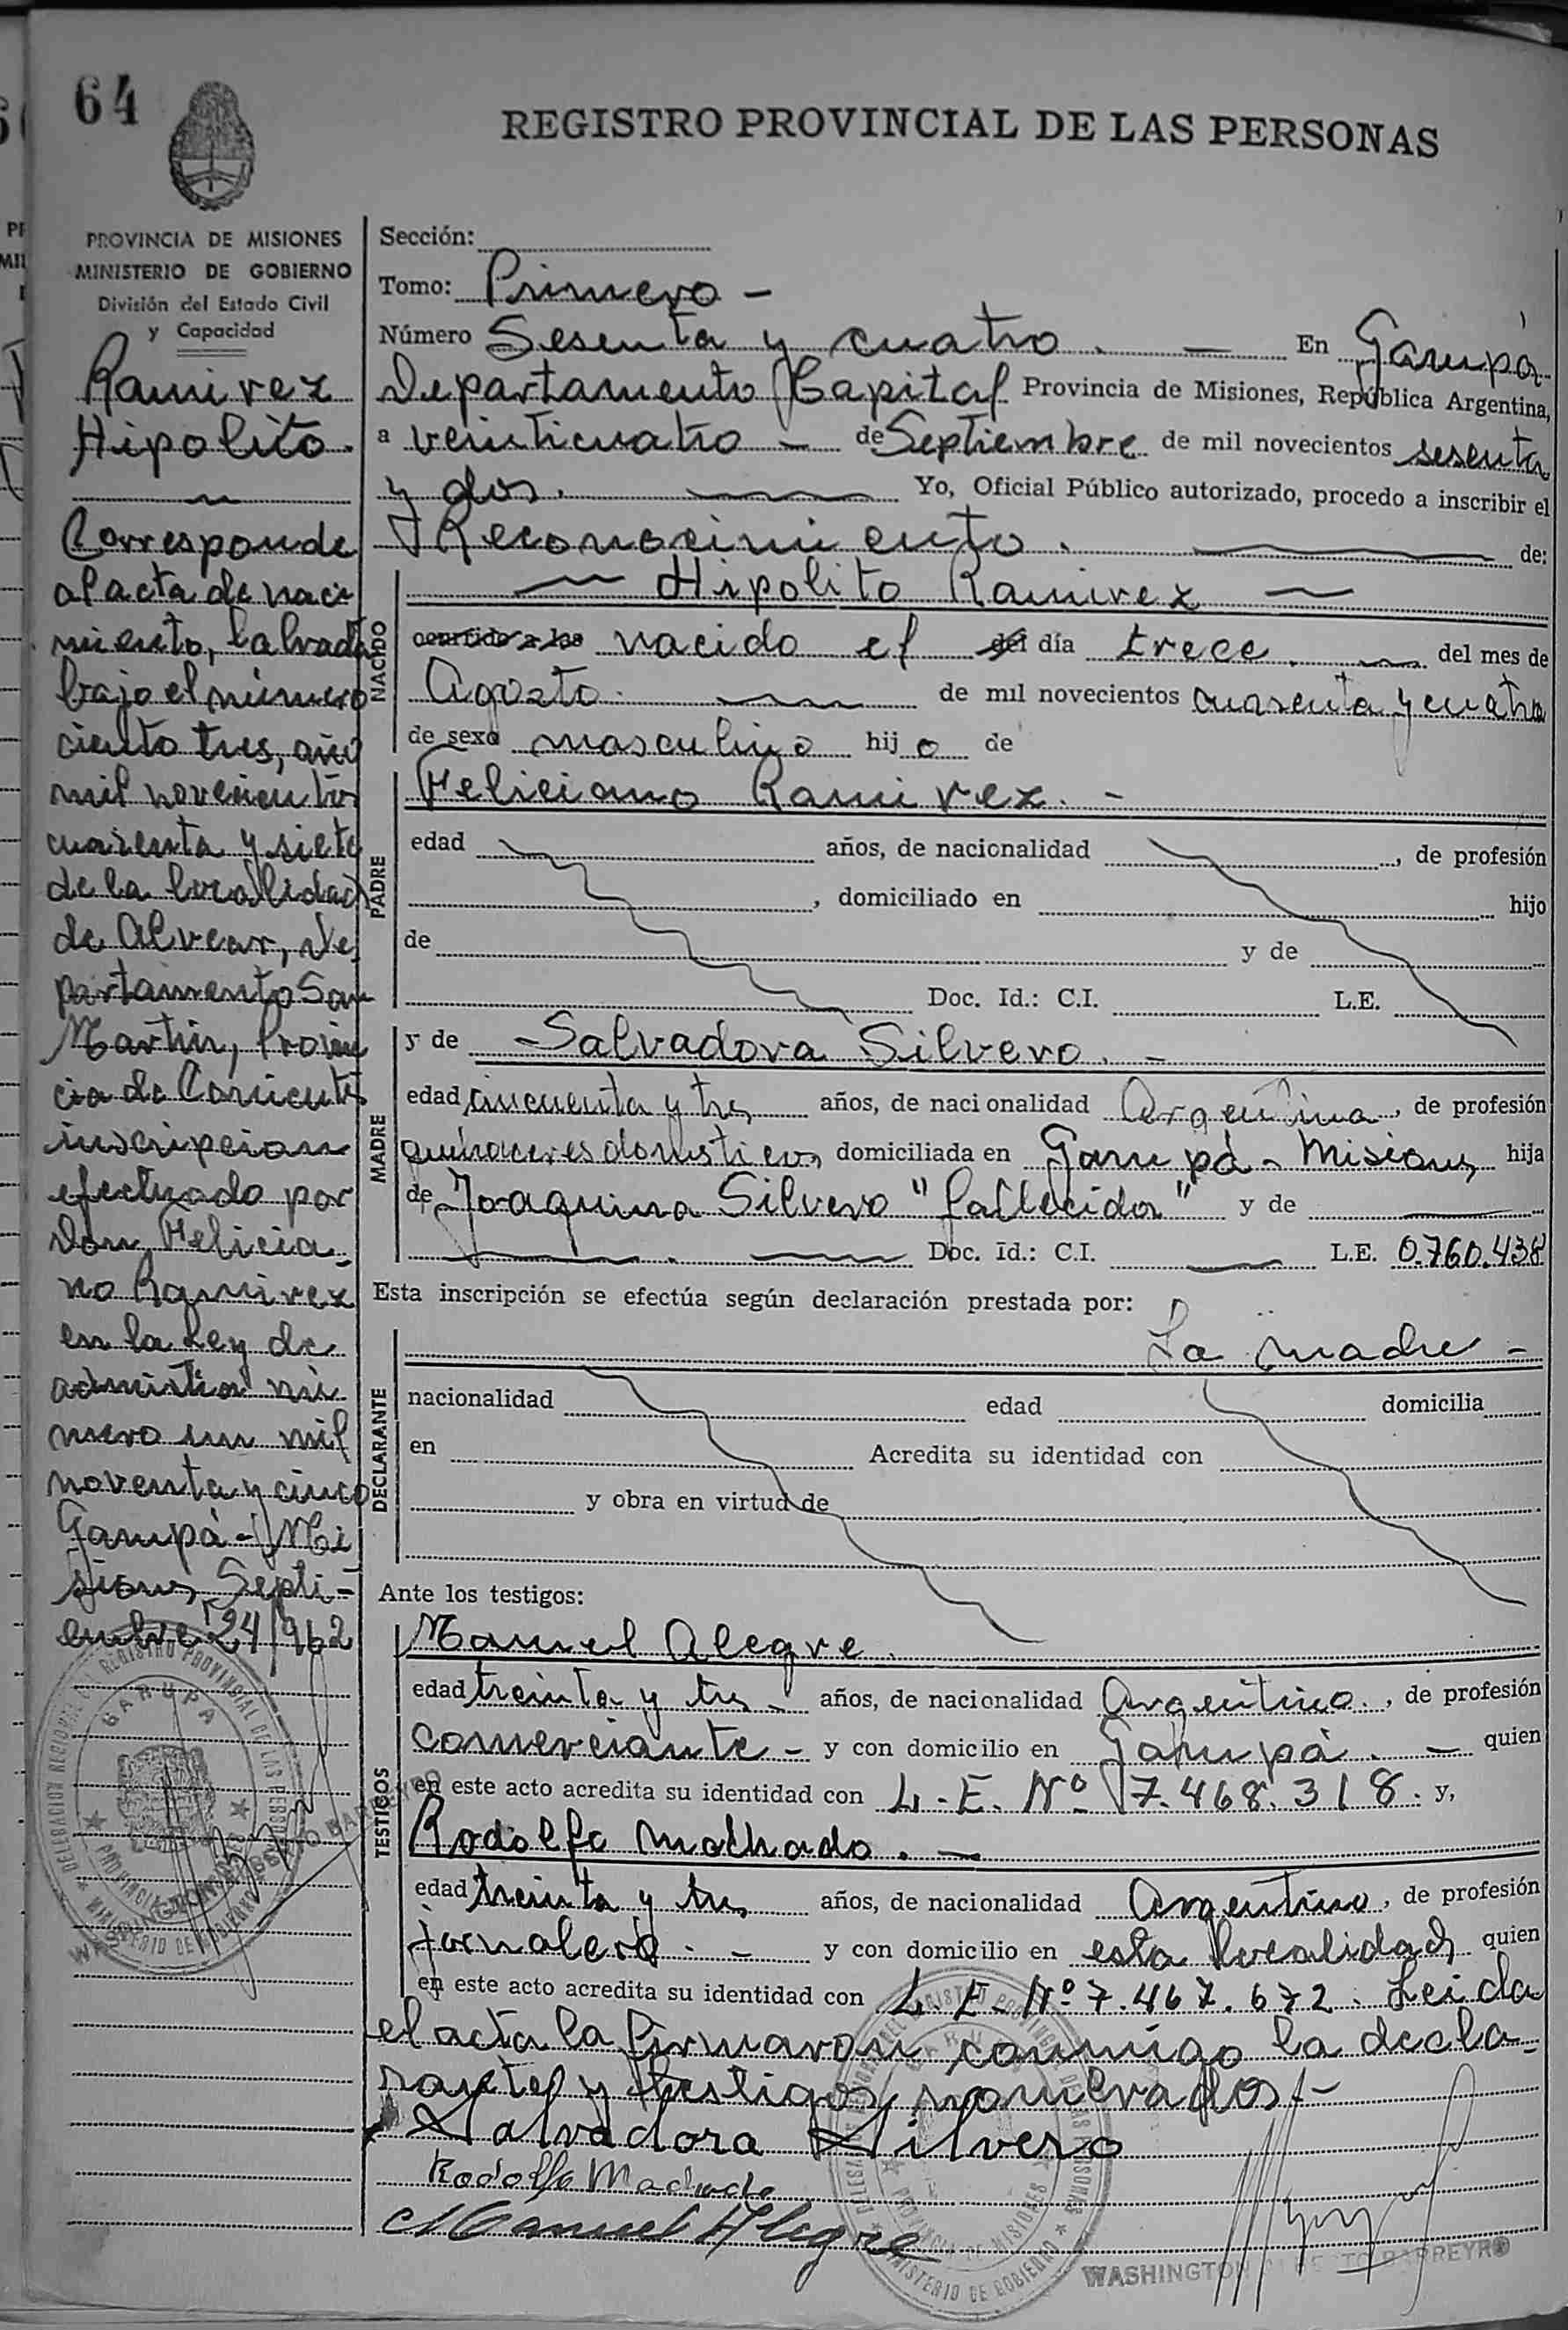 64
REGISTRO PROVINCIAL DE LAS PERSONAS
PROVINCIA DE MISIONES
MINISTERIO DE GOBIERNO
División del Estado Civil
y Capacidad
Ramirez
Hipolito.
Corresponde
al acta de naci
miento, labrada
bajo el número
ciento tres, año
mil novecientos
cuarenta y siete
de la localidad
de Alvear, De
partamento San
Martin, Provin
cia de Corrientes
inscripcion
efectuado por
Don Felicia
no Ramirez
en la Ley de
amnistia nú
mero un mil
noventa y cinco
Garupá - Mi
siones, Septi-
embre 24/962
Sección:
Tomo: Primero -
Número Sesenta y cuatro. - En Garupá
Departamento Capital Provincia de Misiones, República Argentina,
a veinticuatro - de Septiembre de mil novecientos sesenta
y dos. Yo, Oficial Público autorizado, procedo a inscribir el
Reconocimiento. de:
Hipolito Ramirez
NACIDO
ocurrido a las nacido el del día trece. del mes de
Agosto. de mil novecientos cuarenta y cuatro
de sexo masculino hijo de
PADRE
Feliciano Ramirez. -
edad años, de nacionalidad , de profesión
, domiciliado en hijo
de y de
Doc. Id.: C.I. L.E.
MADRE
y de - Salvadora Silvero. -
edad cincuenta y tres años, de nacionalidad Argentina, de profesión
quehaceres domesticos domiciliada en Garupá - Misiones hija
de Joaquina Silvero "fallecida" y de
Doc. Id.: C.I. L.E. 0.760.438
Esta inscripción se efectúa según declaración prestada por:
DECLARANTE
La madre -
nacionalidad edad domicilia
en Acredita su identidad con
y obra en virtud de
Ante los testigos:
TESTIGOS
Manuel Alegre.
edad treinta y tres - años, de nacionalidad Argentino., de profesión
comerciante - y con domicilio en Garupá. - quien
en este acto acredita su identidad con L.E. Nº 7.468.318. y,
Rodolfo Machado. -
edad treinta y tres años, de nacionalidad Argentino, de profesión
jornalero. - y con domicilio en esta localidad quien
en este acto acredita su identidad con L.E. Nº 7.467.672. Leida
el acta la firmaron conmigo la decla-
rante y testigos nomerados. -
Salvadora Silvero
Rodolfo Machado
Manuel Alegre
GARUPA
PROVINCIA DE MISIONES
MINISTERIO DE GOBIERNO
WASHINGTON BARREYRO